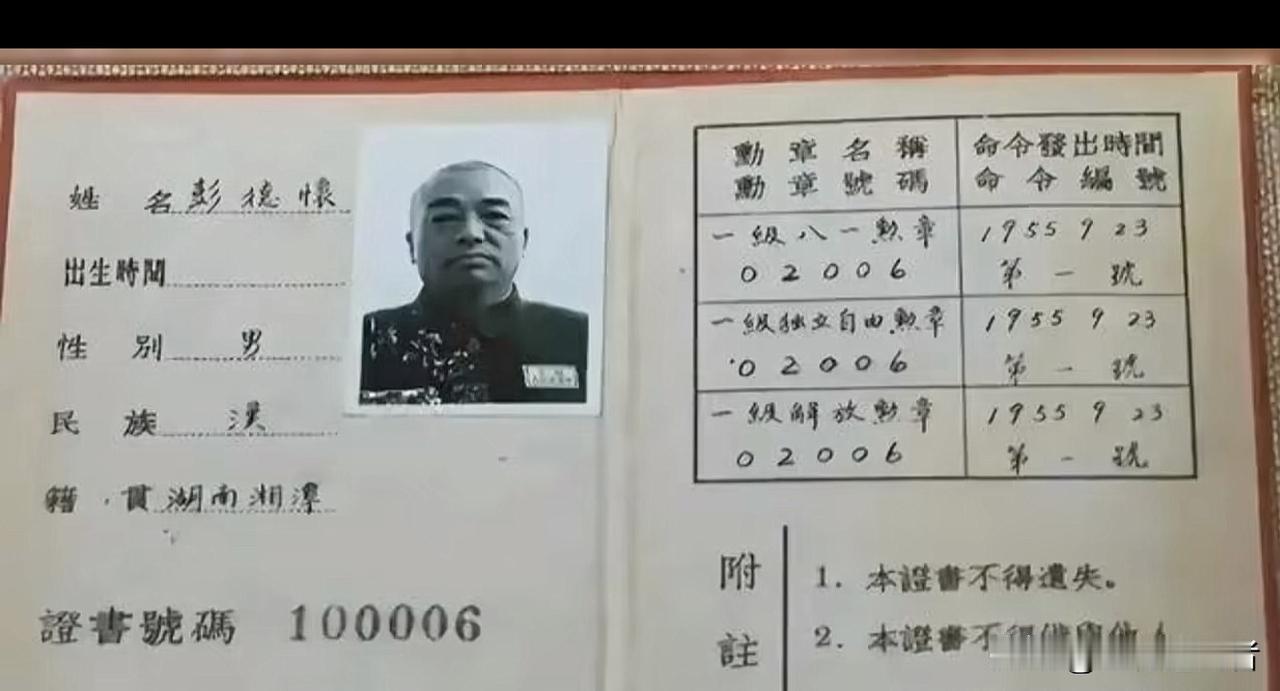 姓 名 彭德懷
出生時間
性 別 男
民 族 漢
籍 貫 湖南湘潭
證書號碼 100006
勳章名稱 命令發出時間
勳章號碼 命令編號
一級八一勲章 1955 9 23
02006 第一號
一級独立自由勲章 1955 9 23
02006 第一號
一級解放勲章 1955 9 23
02006 第一號
附註
1. 本證書不得遺失。
2. 本證書不得